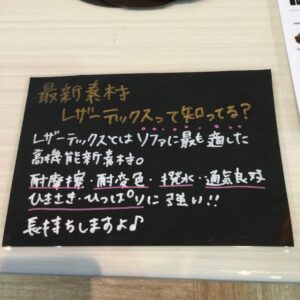 最新素材
レザーテックスって知ってる？
レザーテックスとはソファに最も適した
高機能新素材。
耐摩擦・耐変色・撥水・通気良好
ひきさき・ひっぱりに強い!!
長持ちしますよ♪